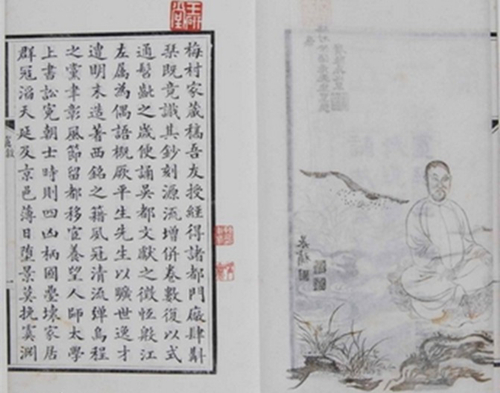 梅村家藏稿吾友授經得諸都門廠肆斠
栞既竟識其鈔刻源流增併卷數復以式
通髫齔之歲便誦吳都文獻之徵恆殷江
左屬為偶語槪厥平生先生以曠世逸才
遭明末造著西銘之籍風冠清流彈烏程
之黨聿彰風節留都移宦養望人師太學
上書訟寃朝士時則四凶柄國壘壞家居
群冠滔天延及京邑薄日墮景莫挽虞淵